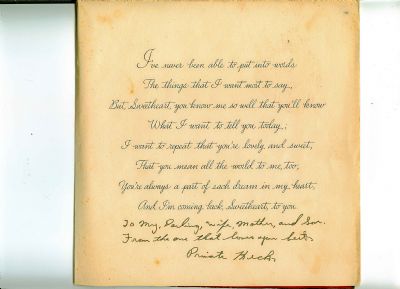 I've never been able to put into words
The things that I want most to say.,
But, Sweetheart, you know me so well that you'll know
What I want to tell you today.;
I want to repeat that you're lovely and sweet,
That you mean all the world to me, too,
You're always a part of each dream in my heart,
And I'm coming back, Sweetheart, to you.
To My, Darling, Wife, Mother, and Son.
From the one that loves you best.
Private